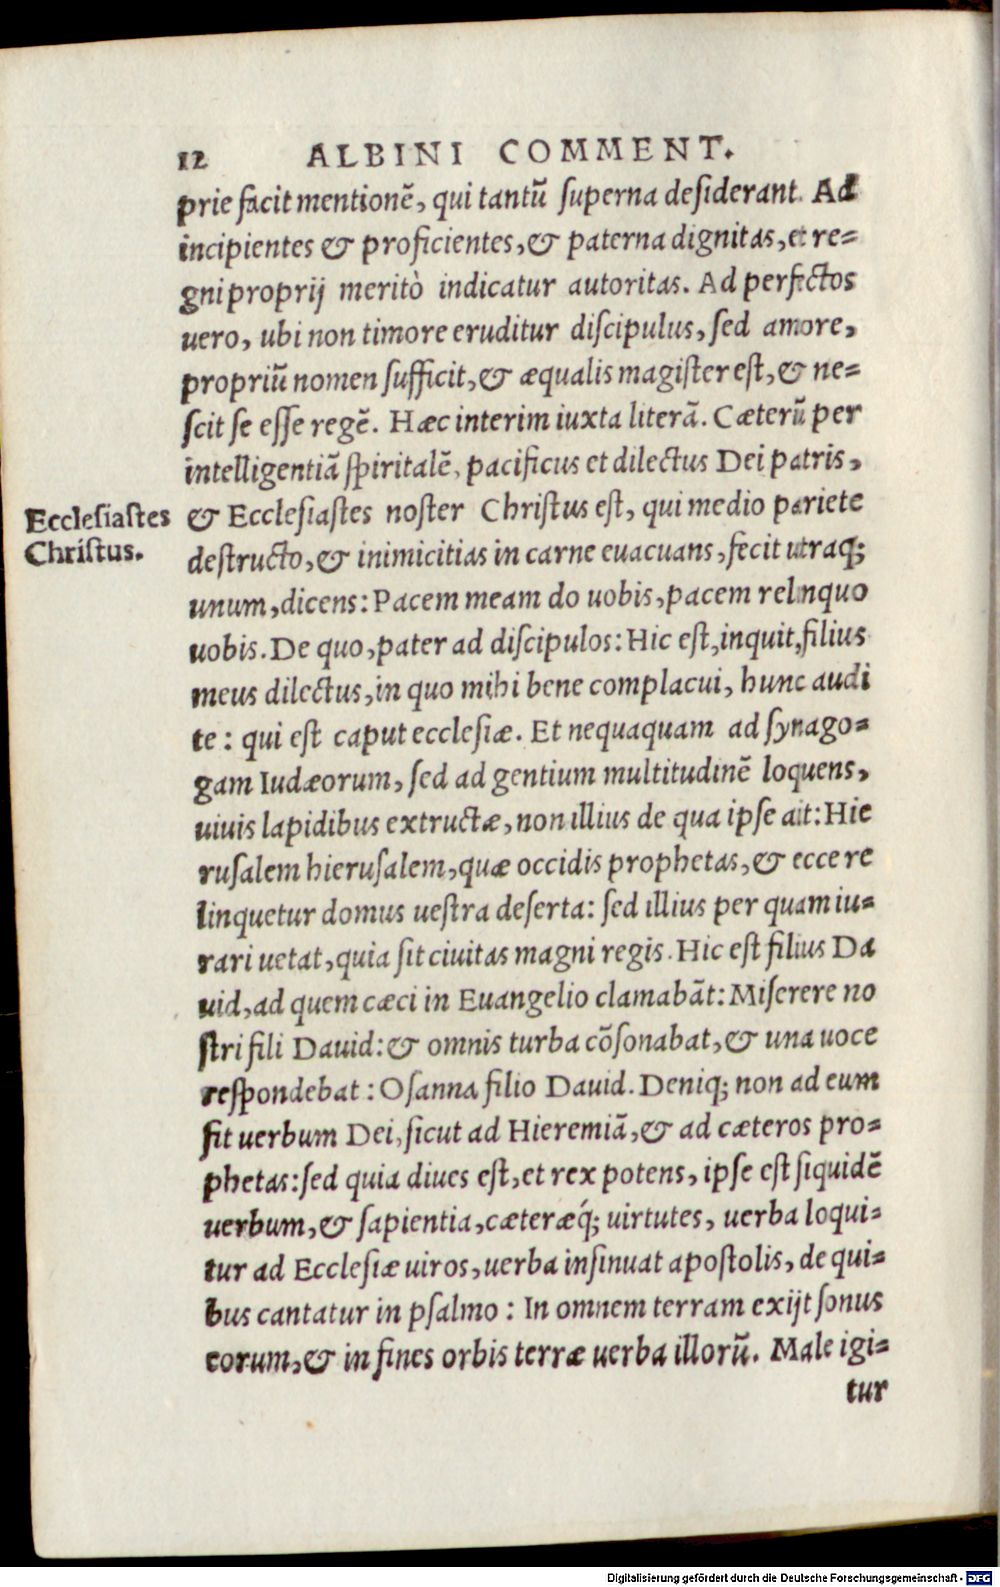 12 ALBINI COMMENT.
prie facit mentionē, qui tantū superna desiderant. Ad
incipientes & proficientes, & paterna dignitas, et re-
gni proprij meritò indicatur autoritas. Ad perfectos
uero, ubi non timore eruditur discipulus, sed amore,
propriū nomen sufficit, & æqualis magister est, & ne-
scit se esse regē. Hæc interim iuxta literā. Cæterū per
intelligentiā spiritalē, pacificus et dilectus Dei patris,
Ecclesiastes
Christus.
& Ecclesiastes noster Christus est, qui medio pariete
destructo, & inimicitias in carne euacuans, fecit utraq;
unum, dicens: Pacem meam do uobis, pacem relinquo
uobis. De quo, pater ad discipulos: Hic est, inquit, filius
meus dilectus, in quo mihi bene complacui, hunc audi
te: qui est caput ecclesiæ. Et nequaquam ad synago-
gam Iudæorum, sed ad gentium multitudinē loquens,
uiuis lapidibus extructæ, non illius de qua ipse ait: Hie
rusalem hierusalem, quæ occidis prophetas, & ecce re
linquetur domus uestra deserta: sed illius per quam iu-
rari uetat, quia sit ciuitas magni regis. Hic est filius Da
uid, ad quem cæci in Euangelio clamabāt: Miserere no
stri fili Dauid: & omnis turba cōsonabat, & una uoce
respondebat: Osanna filio Dauid. Deniq; non ad eum
fit uerbum Dei, sicut ad Hieremiā, & ad cæteros pro-
phetas: sed quia diues est, et rex potens, ipse est siquidē
uerbum, & sapientia, cæteræq́; uirtutes, uerba loqui-
tur ad Ecclesiæ uiros, uerba insinuat apostolis, de qui-
bus cantatur in psalmo: In omnem terram exijt sonus
eorum, & in fines orbis terræ uerba illorū. Male igi-
tur
Digitalisierung gefördert durch die Deutsche Forschungsgemeinschaft - DFG